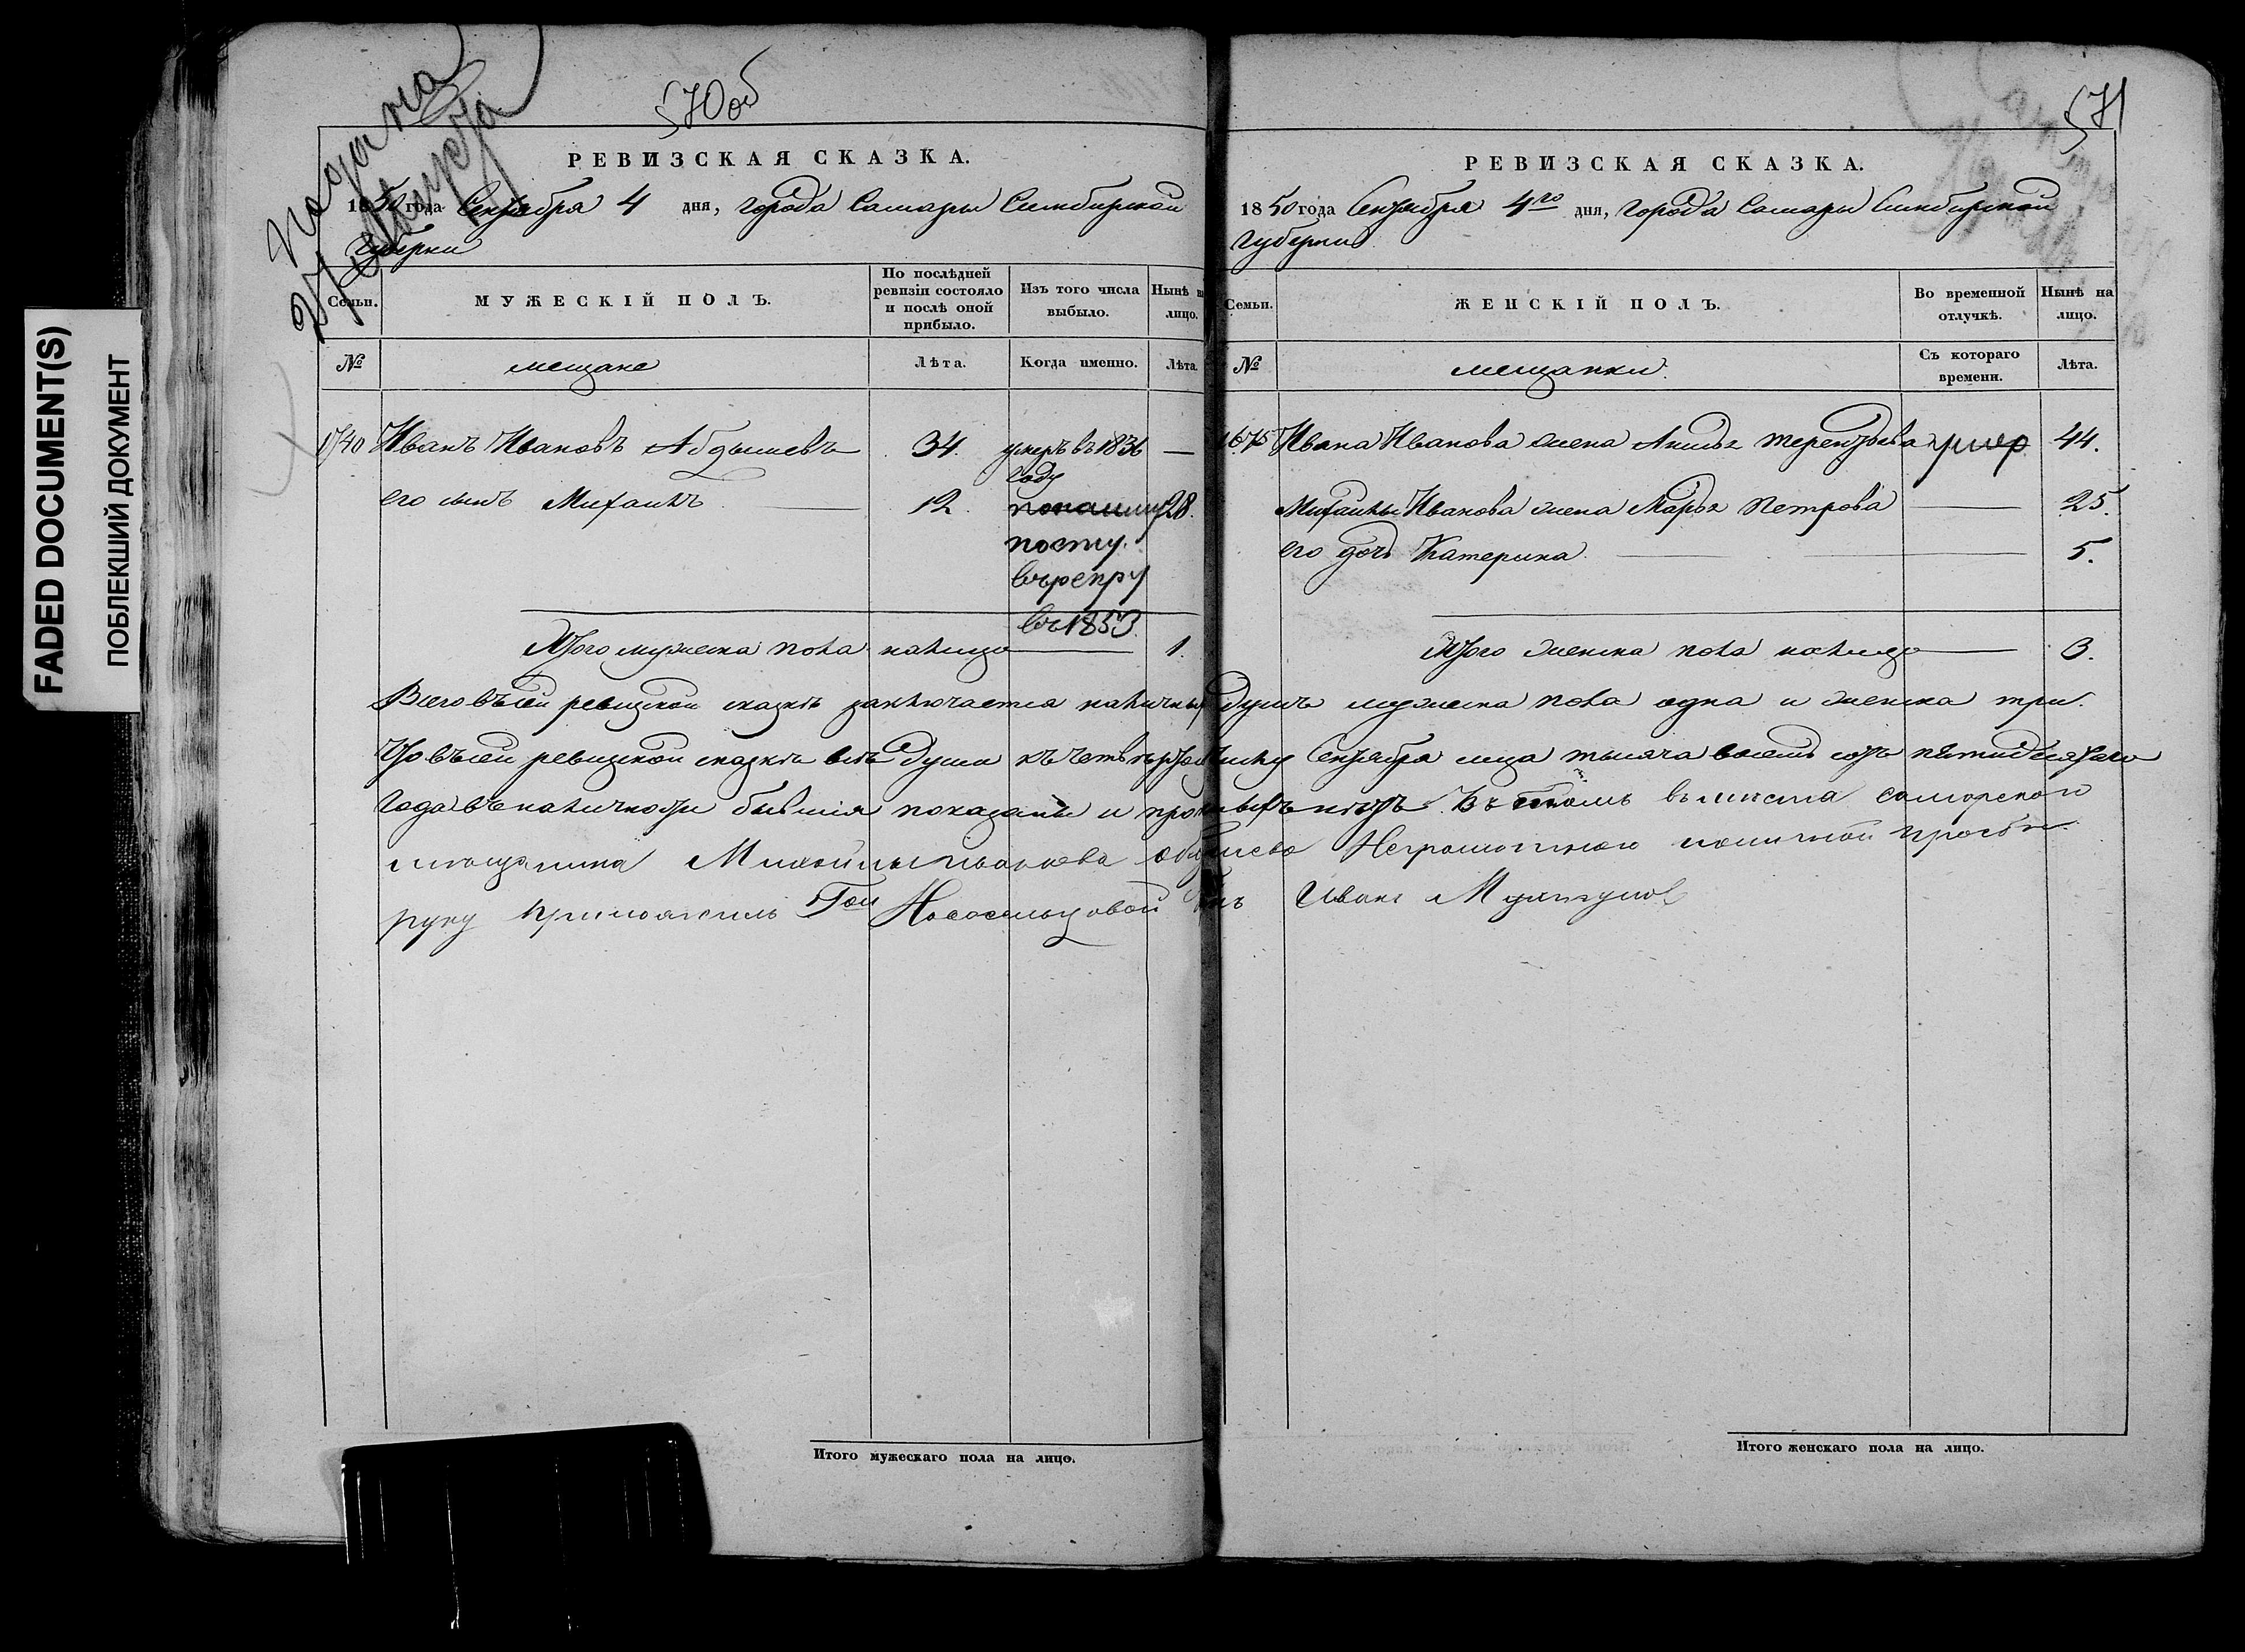 FADED DOCUMENT(S)
ПОБЛЕКШИЙ ДОКУМЕНТ
подана
27
570об
РЕВИЗСКАЯ СКАЗКА.
1850 года Сентября 4 дня, города Самары Симбирской
Губернии
Семьи.
МУЖЕСКІЙ ПОЛЪ.
По послѣдней ревизіи состояло и послѣ оной прибыло.
Изъ того числа выбыло.
Нынѣ на лицо.
№
мещане
Лѣта.
Когда именно.
Лѣта.
1740 Иванъ Ивановъ Абдышевъ 34. умеръ въ 1836 году —
его сынъ Михаилъ — 12. 28.
посту.
въ рекру
въ 1853.
Итого мужеска пола налицо — 1.
571
РЕВИЗСКАЯ СКАЗКА.
1850 года Сентября 4го дня, города Самары Симбирской
Губернии
Семьи.
ЖЕНСКІЙ ПОЛЪ.
Во временной отлучкѣ.
Нынѣ на лицо.
№
мещанки.
Съ котораго времени.
Лѣта.
1675 Ивана Иванова жена Терентьева умер 44.
Михаилы Иванова жена Марья Петрова — 25.
его дочь Катерина — 5.
Итого женска пола налицо — 3.
Всего въ сей ревизской сказкѣ заключается наличныхъ душъ мужеска пола одна и женска три.
Что въ сей ревизской сказкѣ все души къ четвертому числу Сентября м-ца тысяча восемь сотъ пятидесятаго
Года въ наличности бывшія показаны и прописныхъ нѣтъ. Въ томъ въ место самарскаго
мещанина Михайлы Иванова Абдышева Неграмотнаго по личной прозбе
руку приложилъ Новосельцовой Иванъ
Итого мужескаго пола на лицо.
Итого женскаго пола на лицо.